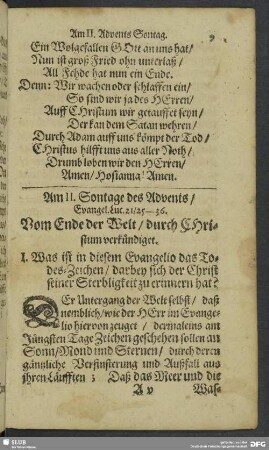 Am II. Advents Sontag. 9
Ein Wolgefallen GOtt an uns hat/
Nun ist groß Fried ohn unterlaß/
All Fehde hat nun ein Ende.
Denn: Wir wachen oder schlaffen ein/
So sind wir ja des HErren/
Auff CHristum wir getauffet seyn/
Der kan dem Satan wehren/
Durch Adam auff uns kömpt der Tod/
CHristus hilfft uns aus aller Noth/
Drumb loben wir den HErren/
Amen/ Hosianna! Amen.
Am II. Sontage des Advents/
Evangel. Luc. 21/25—36.
Vom Ende der Welt/ durch CHri-
stum verkündiget.
I. Was ist in diesem Evangelio das To-
des-Zeichen/ darbey sich der Christ
seiner Sterbligkeit zu erinnern hat?
DEr Untergang der Welt selbst/ daß
nemblich/ wie der HErr im Evange-
lio hiervon zeuget/ dermaleins am
Jüngsten Tage Zeichen geschehen sollen an
Sonn/ Mond und Sternen/ durch deren
gäntzliche Verfinsterung und Außfall aus
ihren Läufften; Daß das Meer und die
A v Was-
SLUB
DFG